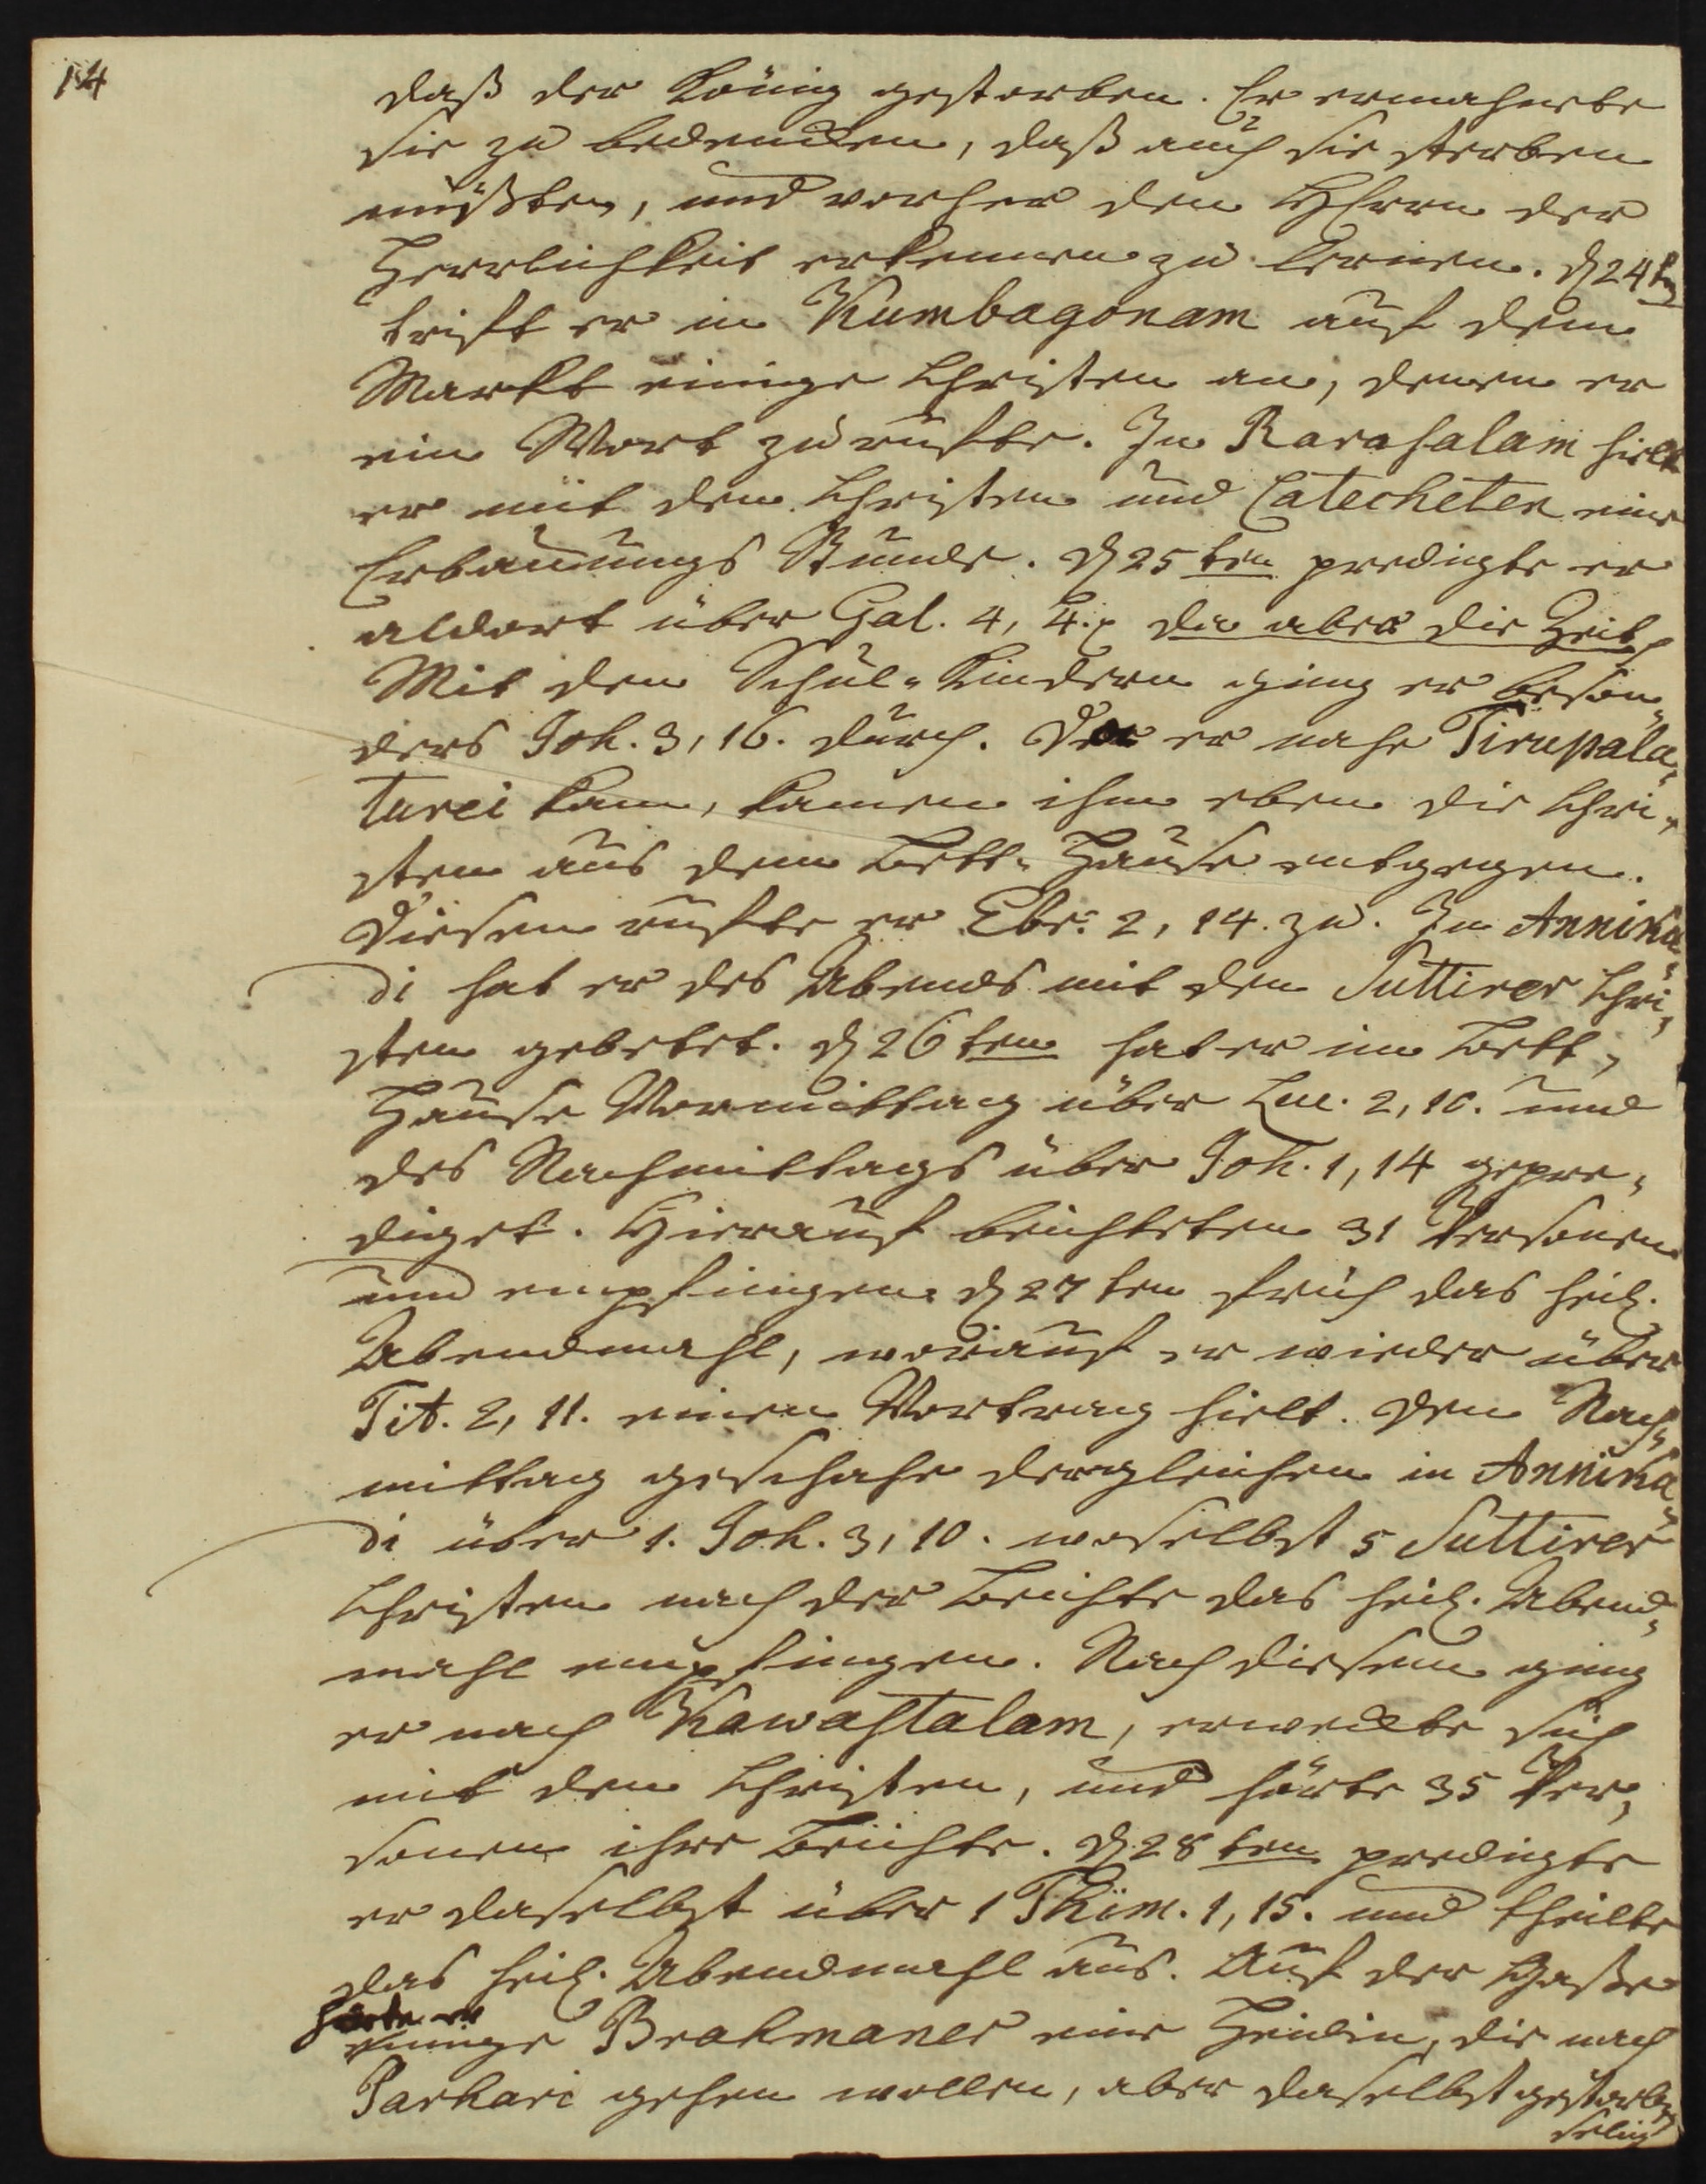 14
daß der König gestorben. Er ermahnete
sie zu bedencken, daß auch sie sterben
müßten, und vorher den HErrn der
Herrlichkeit erkennen zu lernen. d 24ten
trift er in Kumbagonam auf dem
Markt einige Christen an, denen er
ein Wort zurufte. In Rarasalam hielt
er mit den Christen und Catecheten eine
Erbauungs Stunde. d 25ten predigte er
aldort über Gal. 4, 4. da aber die Zeit
Mit den Schul-Kindern ging er beson-
ders Joh. 3, 16. durch. Da er nahe Tirupala-
turei kam, kamen ihm eben die Chri-
sten aus dem Bett-Hause entgegen.
Diesen rufte er Ebr. 2, 14. zu. In Annika-
di hat er des Abends mit den Suttirer Chri-
sten gebetet. d 26ten hat er im Bett-
Hause Vormittag über Luc. 2, 10. und
des Nachmittags über Joh. 1, 14 gepre-
diget. Hierauf beichteten 31 Personen
und empfingen d 27ten früh das heil.
Abendmahl, worauf er wieder über
Tit. 2, 11. einen Vortrag hielt. Den Nach-
mittag geschahe dergleichen in Annika-
di über 1. Joh. 3, 10. woselbst 5 Suttirer
Christen nach der Beichte das heil. Abend-
mahl empfingen. Nach diesem ging
er nach Kawastalam, erweckte sich
mit den Christen, und hörte 35 Per-
sonen ihre Beichte. d 28ten predigte
er daselbst über 1 Thim. 1, 15. und theilte
das heil. Abendmahl aus. Auf der Gaße
hörte er
einige Brahmaner eine Heidin, die nach
Parkari gehen wollen, aber daselbst gestorben
selig